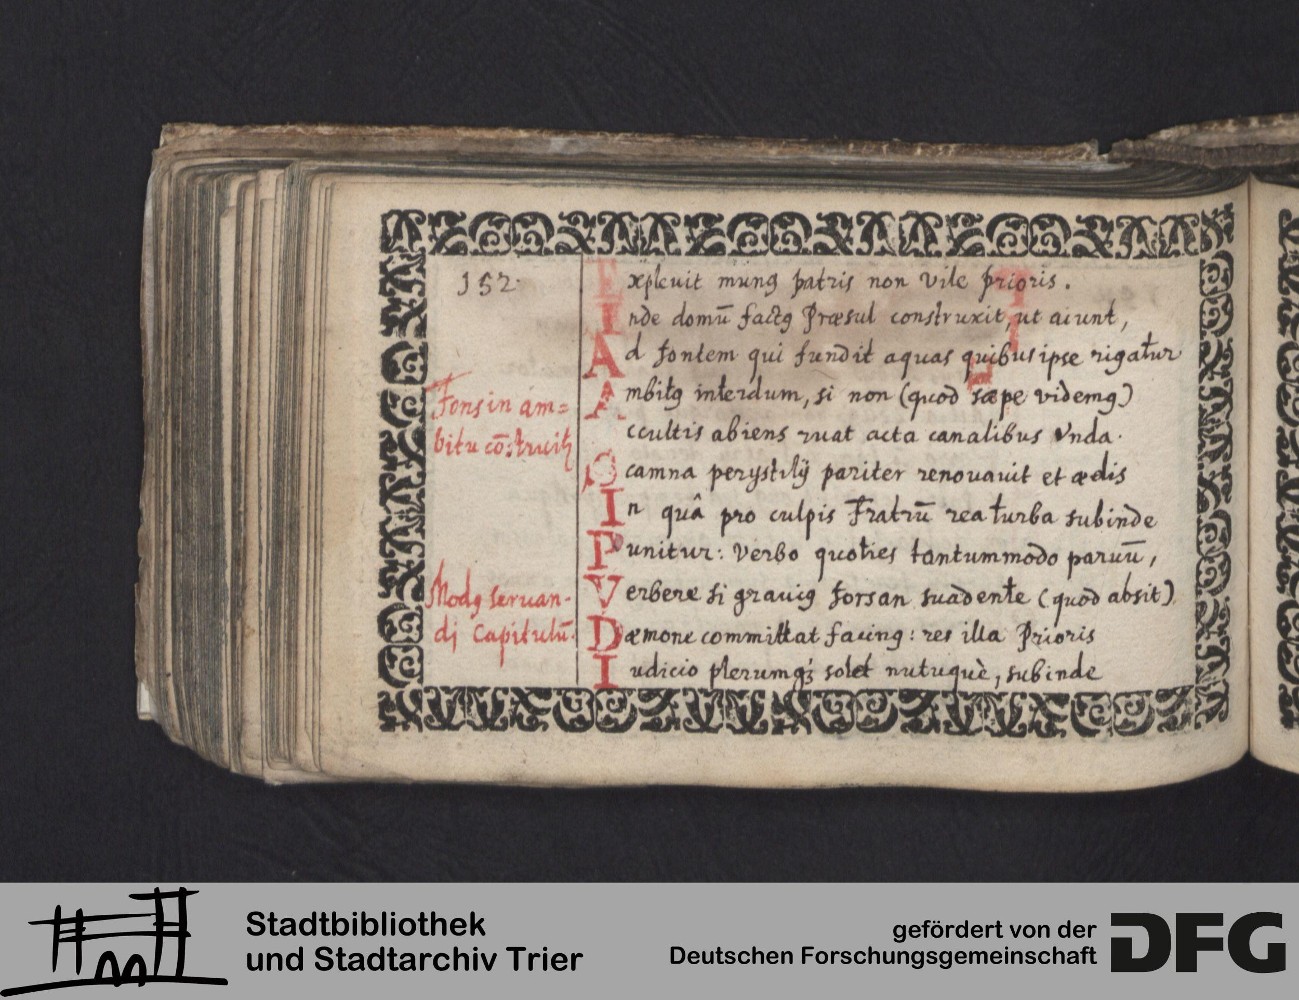 152.
Expleuit munꝯ patris non vile prioris.
Inde domū factꝯ Præsul construxit, ut aiunt,
Ad fontem qui fundit aquas quibus ipse rigatur
Ambitꝯ interdum, si non (quod sæpe videmꝯ)
ccultis abiens ruat acta canalibus vnda.
Fons in am=
bitu cōstruitꝭ
Scamna perystilÿ pariter renouauit et ædis
In quâ pro culpis Fratrū rea turba subinde
Punitur: Verbo quoties tantummodo paruū,
Verbere si grauiꝯ forsan suadente (quod absit)
Dæmone committat facinꝯ: res illa Prioris
Iudicio plerumqꝫ solet nutuquè, subinde
Modꝯ seruan-
di Capitulū.
Stadtbibliothek
und Stadtarchiv Trier
gefördert von der
Deutschen Forschungsgemeinschaft
DFG